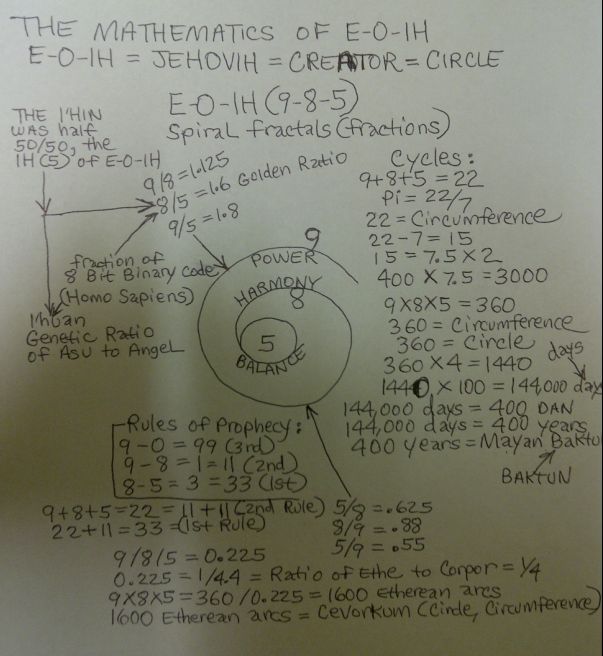 THE MATHEMATICS OF E-O-IH
E-O-IH = JEHOVIH = CREATOR = CIRCLE
E-O-IH (9-8-5)
Spiral Fractals (fractions)
THE I'HIN
WAS half
50/50, the
IH(5) of E-O-IH
9/8 = 1.125
8/5 = 1.6 Golden Ratio
9/5 = 1.8
fraction of
8 Bit Binary Code
(Homo Sapiens)
Ihuan
Genetic Ratio
of Asu to Angel
9
POWER
HARMONY
8
5
BALANCE
Cycles:
9+8+5 = 22
Pi = 22/7
22 = Circumference
22-7 = 15
15 = 7.5 X 2
400 X 7.5 = 3000
9X8X5 = 360
360 = Circumference
360 = Circle
360 X 4 = 1440
days
1440 X 100 = 144,000 day
144,000 days = 400 DAN
144,000 days = 400 years
400 years = Mayan Baktu
BAKTUN
Rules of Prophecy:
9-0 = 99 (3rd)
9-8 = 1 = 11 (2nd)
8-5 = 3 = 33 (1st)
9+8+5 = 22 = 11 + 11 (2nd Rule)
22+11 = 33 = (1st Rule)
5/8 = .625
8/9 = .88
5/9 = .55
9/8/5 = 0.225
0.225 = 1/4.4 = Ratio of Ethe to Corpor = 1/4
9X8X5 = 360 / 0.225 = 1600 Etherean arcs
1600 Etherean arcs = Cevorkum (Circle, Circumference)